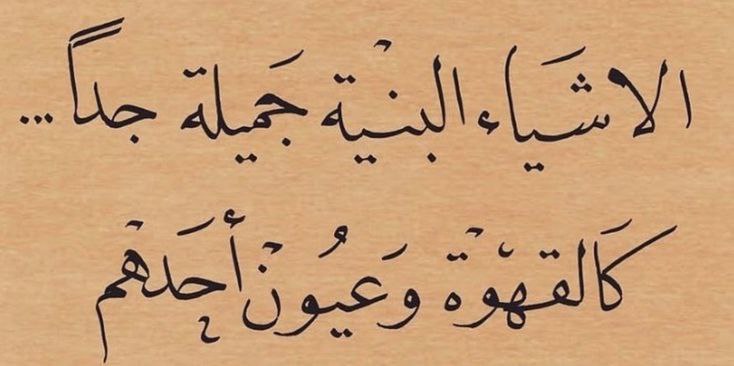 الاشَياء البنية جَميلة جداً...
كَالقهوة وَعيُون أحَدهم